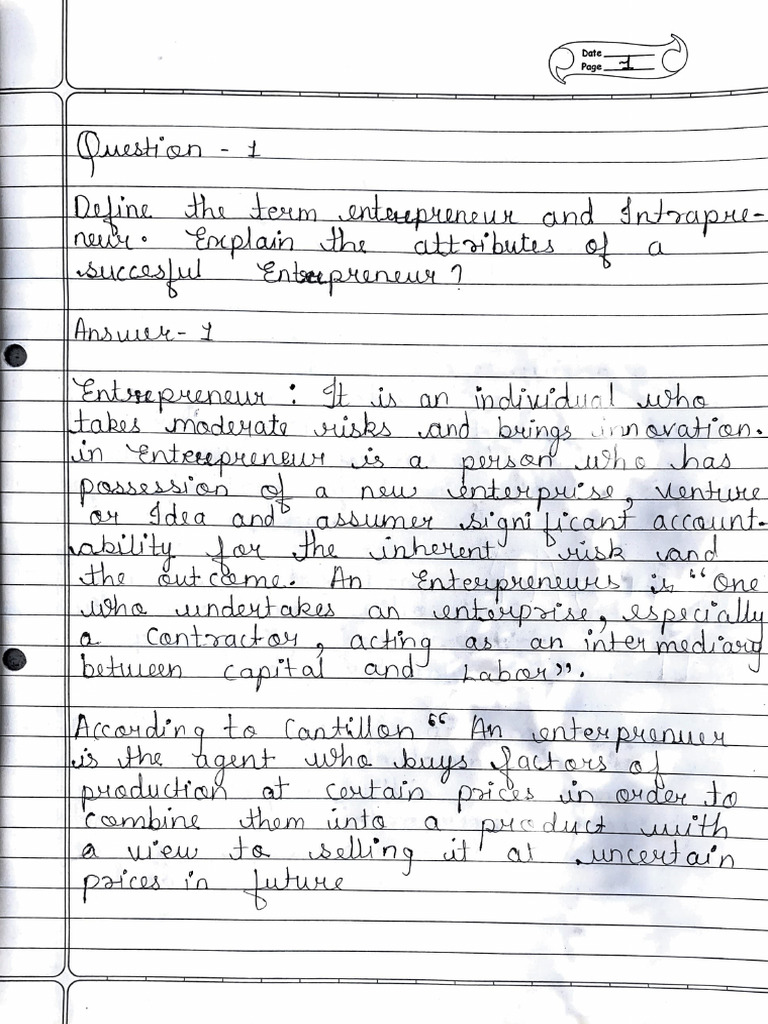 Date
Page 1
Question - 1
Define the term enterepreneur and Intrapre-
neur. Explain the attributes of a
succesful Enterepreneur?
Answer- 1
Entrepreneur : It is an individual who
takes moderate risks and brings innovation.
in Enterepreneur is a person who has
possession of a new enterprise, venture
or Idea and assumer significant account-
ability for the inherent risk and
the outcome. An Enterpreneurs is "One
who undertakes an enterprise, especially
a contractor, acting as an intermediary
between capital and Labor".
According to Cantillon " An enterprenuer
is the agent who buys factors of
production at certain prices in order to
combine them into a product with
a view to selling it at uncertain
prices in future